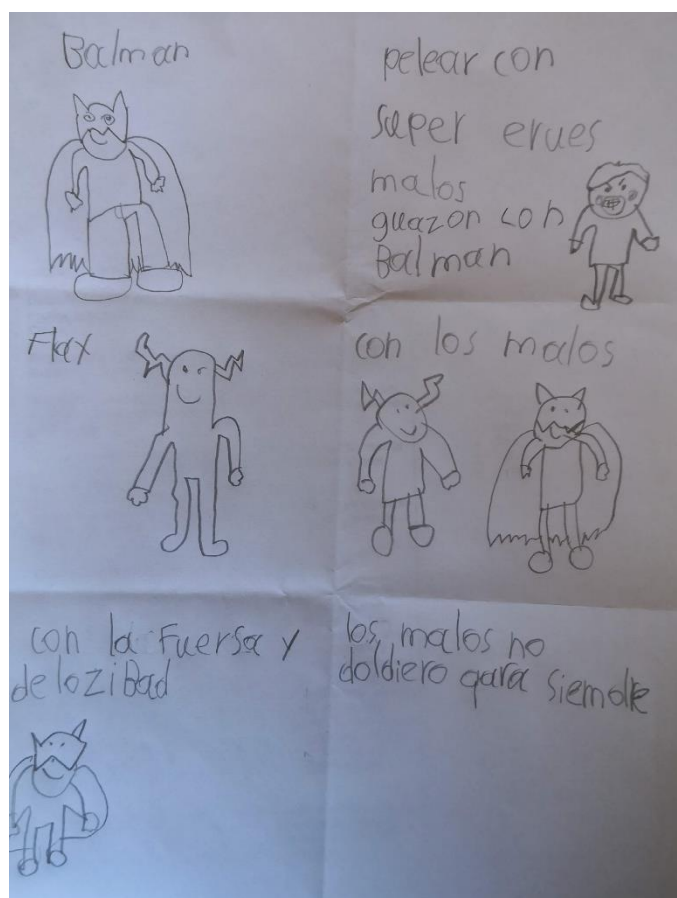 Balman
pelear con
super erues
malos
guazon con
Balman
Flax
con los malos
con la Fuersa y
delozibad
los malos no
doldiero para siemdre